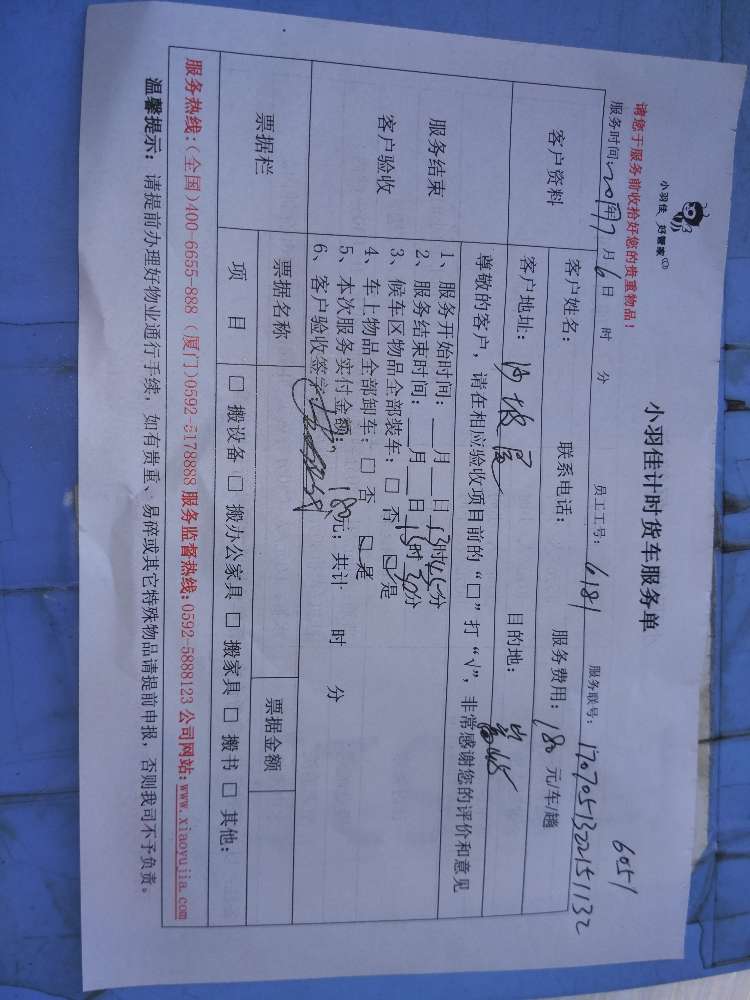 6051
小羽佳 好管家
小羽佳计时货车服务单
请您于服务前收拾好您的贵重物品!
服务时间: 2017年7月6日 时 分 员工工号: 6181 服务联号: 1707051322151132
客户资料
客户姓名: 联系电话: 服务费用: 180 元/车/趟
客户地址: 沙坡尾 目的地:
服务结束
客户验收
尊敬的客户，请在相应验收项目前的“□”打“√”，非常感谢您的评价和意见
1、服务开始时间: 月 日 13时45分
2、服务结束时间: 月 日 15时30分
3、候车区物品全部装车: □ 否 □ 是
4、车上物品全部卸车: □ 否 □ 是
5、本次服务实付金额: 180元; 共计 时 分
6、客户验收签字:
票据栏
票据名称 票据金额
项 目 □ 搬设备 □ 搬办公家具 □ 搬家具 □ 搬书 □ 其他:
服务热线:(全国)400-6655-888 (厦门)0592-5178888 服务监督热线:0592-5888123 公司网站:www.xiaoyujia.com
温馨提示: 请提前办理好物业通行手续，如有贵重、易碎或其它特殊物品请提前申报，否则我司不予负责。